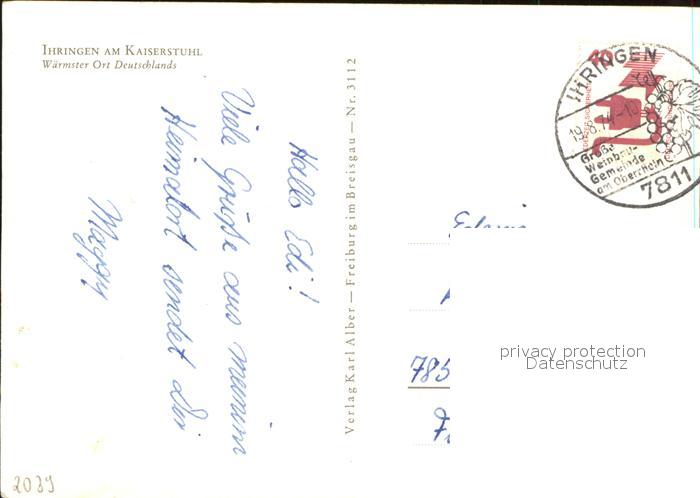 IHRINGEN AM KAISERSTUHL
Wärmster Ort Deutschlands
Hallo Edi!
Viele Grüße aus meinem
Heimatort sendet Dir
Maggy
Verlag Karl Alber — Freiburg im Breisgau — Nr. 3112
IHRINGEN
19.8.74-18
Große
Weinbau-
Gemeinde
am Oberrhein
7811
785
privacy protection
Datenschutz
2039